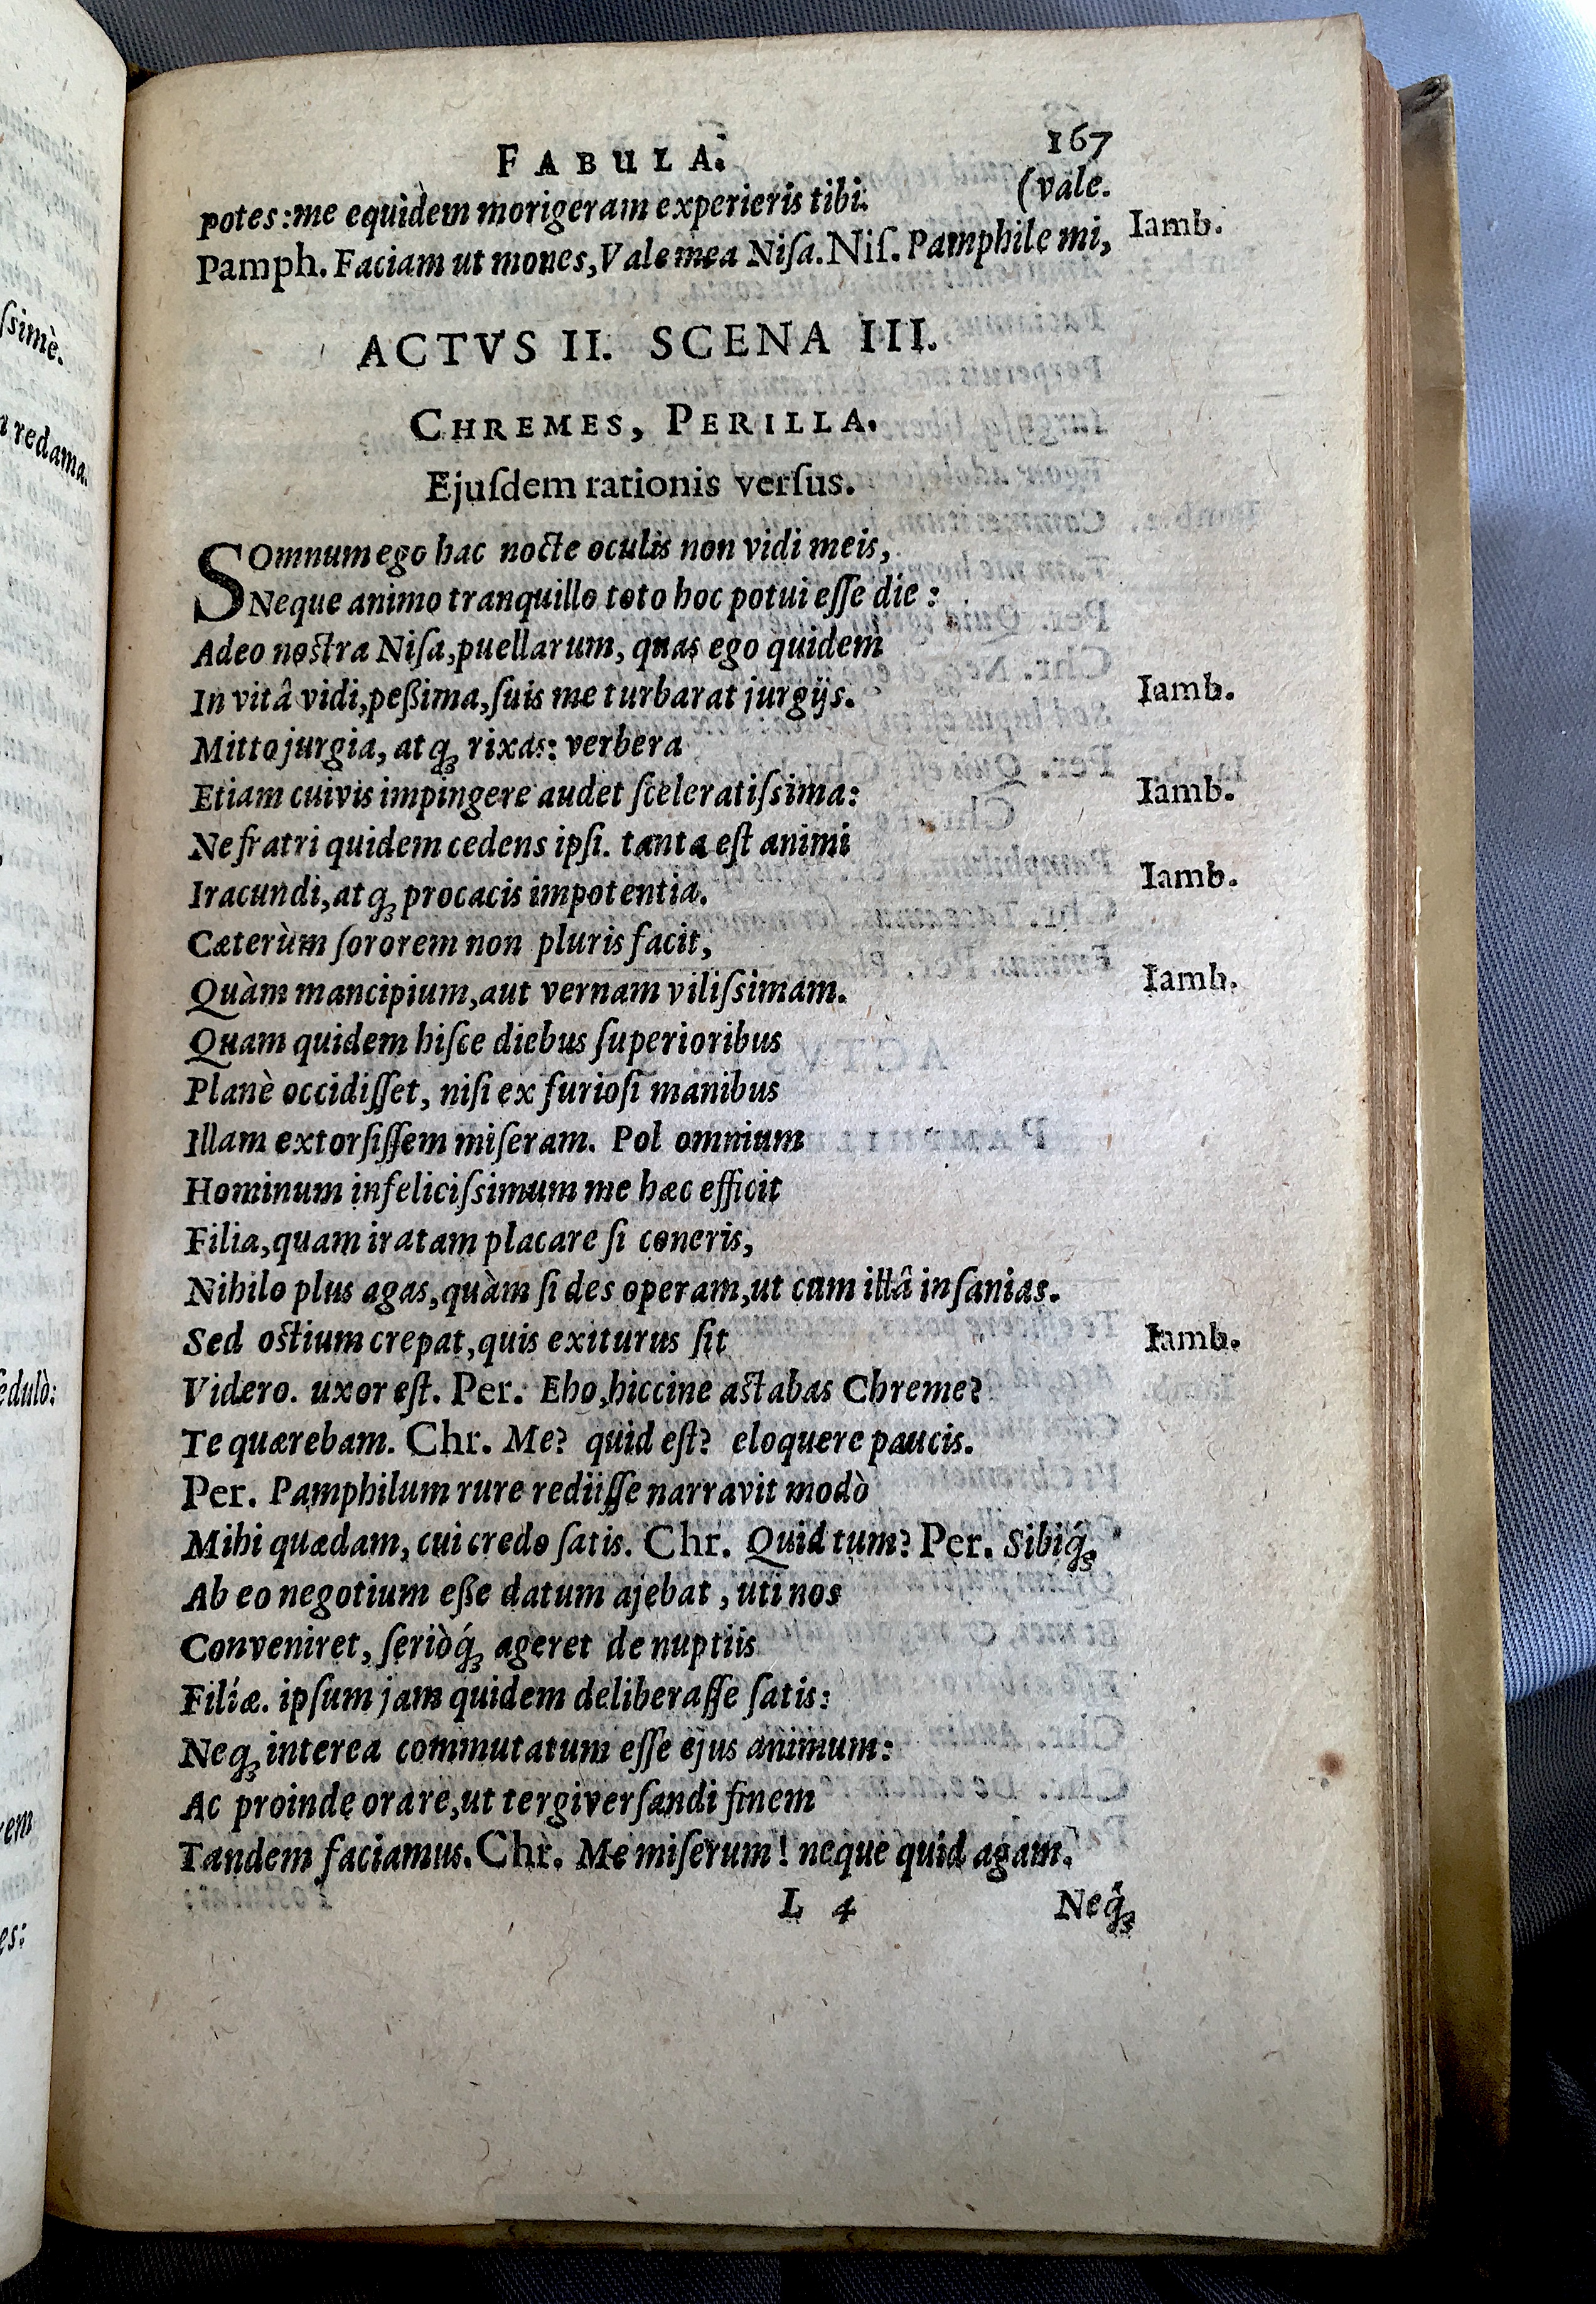 ſsimè.
redama.
edulò:
vem
es:
FABULA. 167
potes: me equidem morigeram experieris tibi. (vale.
Pamph. Faciam ut mones, Vale mea Niſa. Niſ. Pamphile mi, Iamb.
ACTVS II. SCENA III.
CHREMES, PERILLA.
Ejuſdem rationis verſus.
SOmnum ego hac nocte oculis non vidi meis,
Neque animo tranquillo toto hoc potui eſſe die:
Adeo noſtra Niſa, puellarum, quas ego quidem
In vitâ vidi, peßima, ſuis me turbarat jurgijs. Iamb.
Mitto jurgia, atq; rixas: verbera
Etiam cuivis impingere audet ſceleratiſsima: Iamb.
Ne fratri quidem cedens ipſi. tanta eſt animi
Iracundi, atq; procacis impotentia. Iamb.
Cæterùm ſororem non pluris facit,
Quàm mancipium, aut vernam viliſsimam. Iamb.
Quam quidem hiſce diebus ſuperioribus
Planè occidiſſet, niſi ex furioſi manibus
Illam extorſiſſem miſeram. Pol omnium
Hominum infeliciſsimum me hæc efficit
Filia, quam iratam placare ſi coneris,
Nihilo plus agas, quàm ſi des operam, ut cum illâ inſanias.
Sed oſtium crepat, quis exiturus ſit Iamb.
Videro. uxor eſt. Per. Eho, hiccine aſtabas Chreme?
Te quærebam. Chr. Me? quid eſt? eloquere paucis.
Per. Pamphilum rure rediiſſe narravit modò
Mihi quædam, cui credo ſatis. Chr. Quid tum? Per. Sibiq́;
Ab eo negotium eße datum ajebat, uti nos
Conveniret, ſeriòq́; ageret de nuptiis
Filiæ. ipſum jam quidem deliberaſſe ſatis:
Neq; interea commutatum eſſe ejus animum:
Ac proinde orare, ut tergiverſandi finem
Tandem faciamus. Chr. Me miſerum! neque quid agam.
L 4 Neq́;